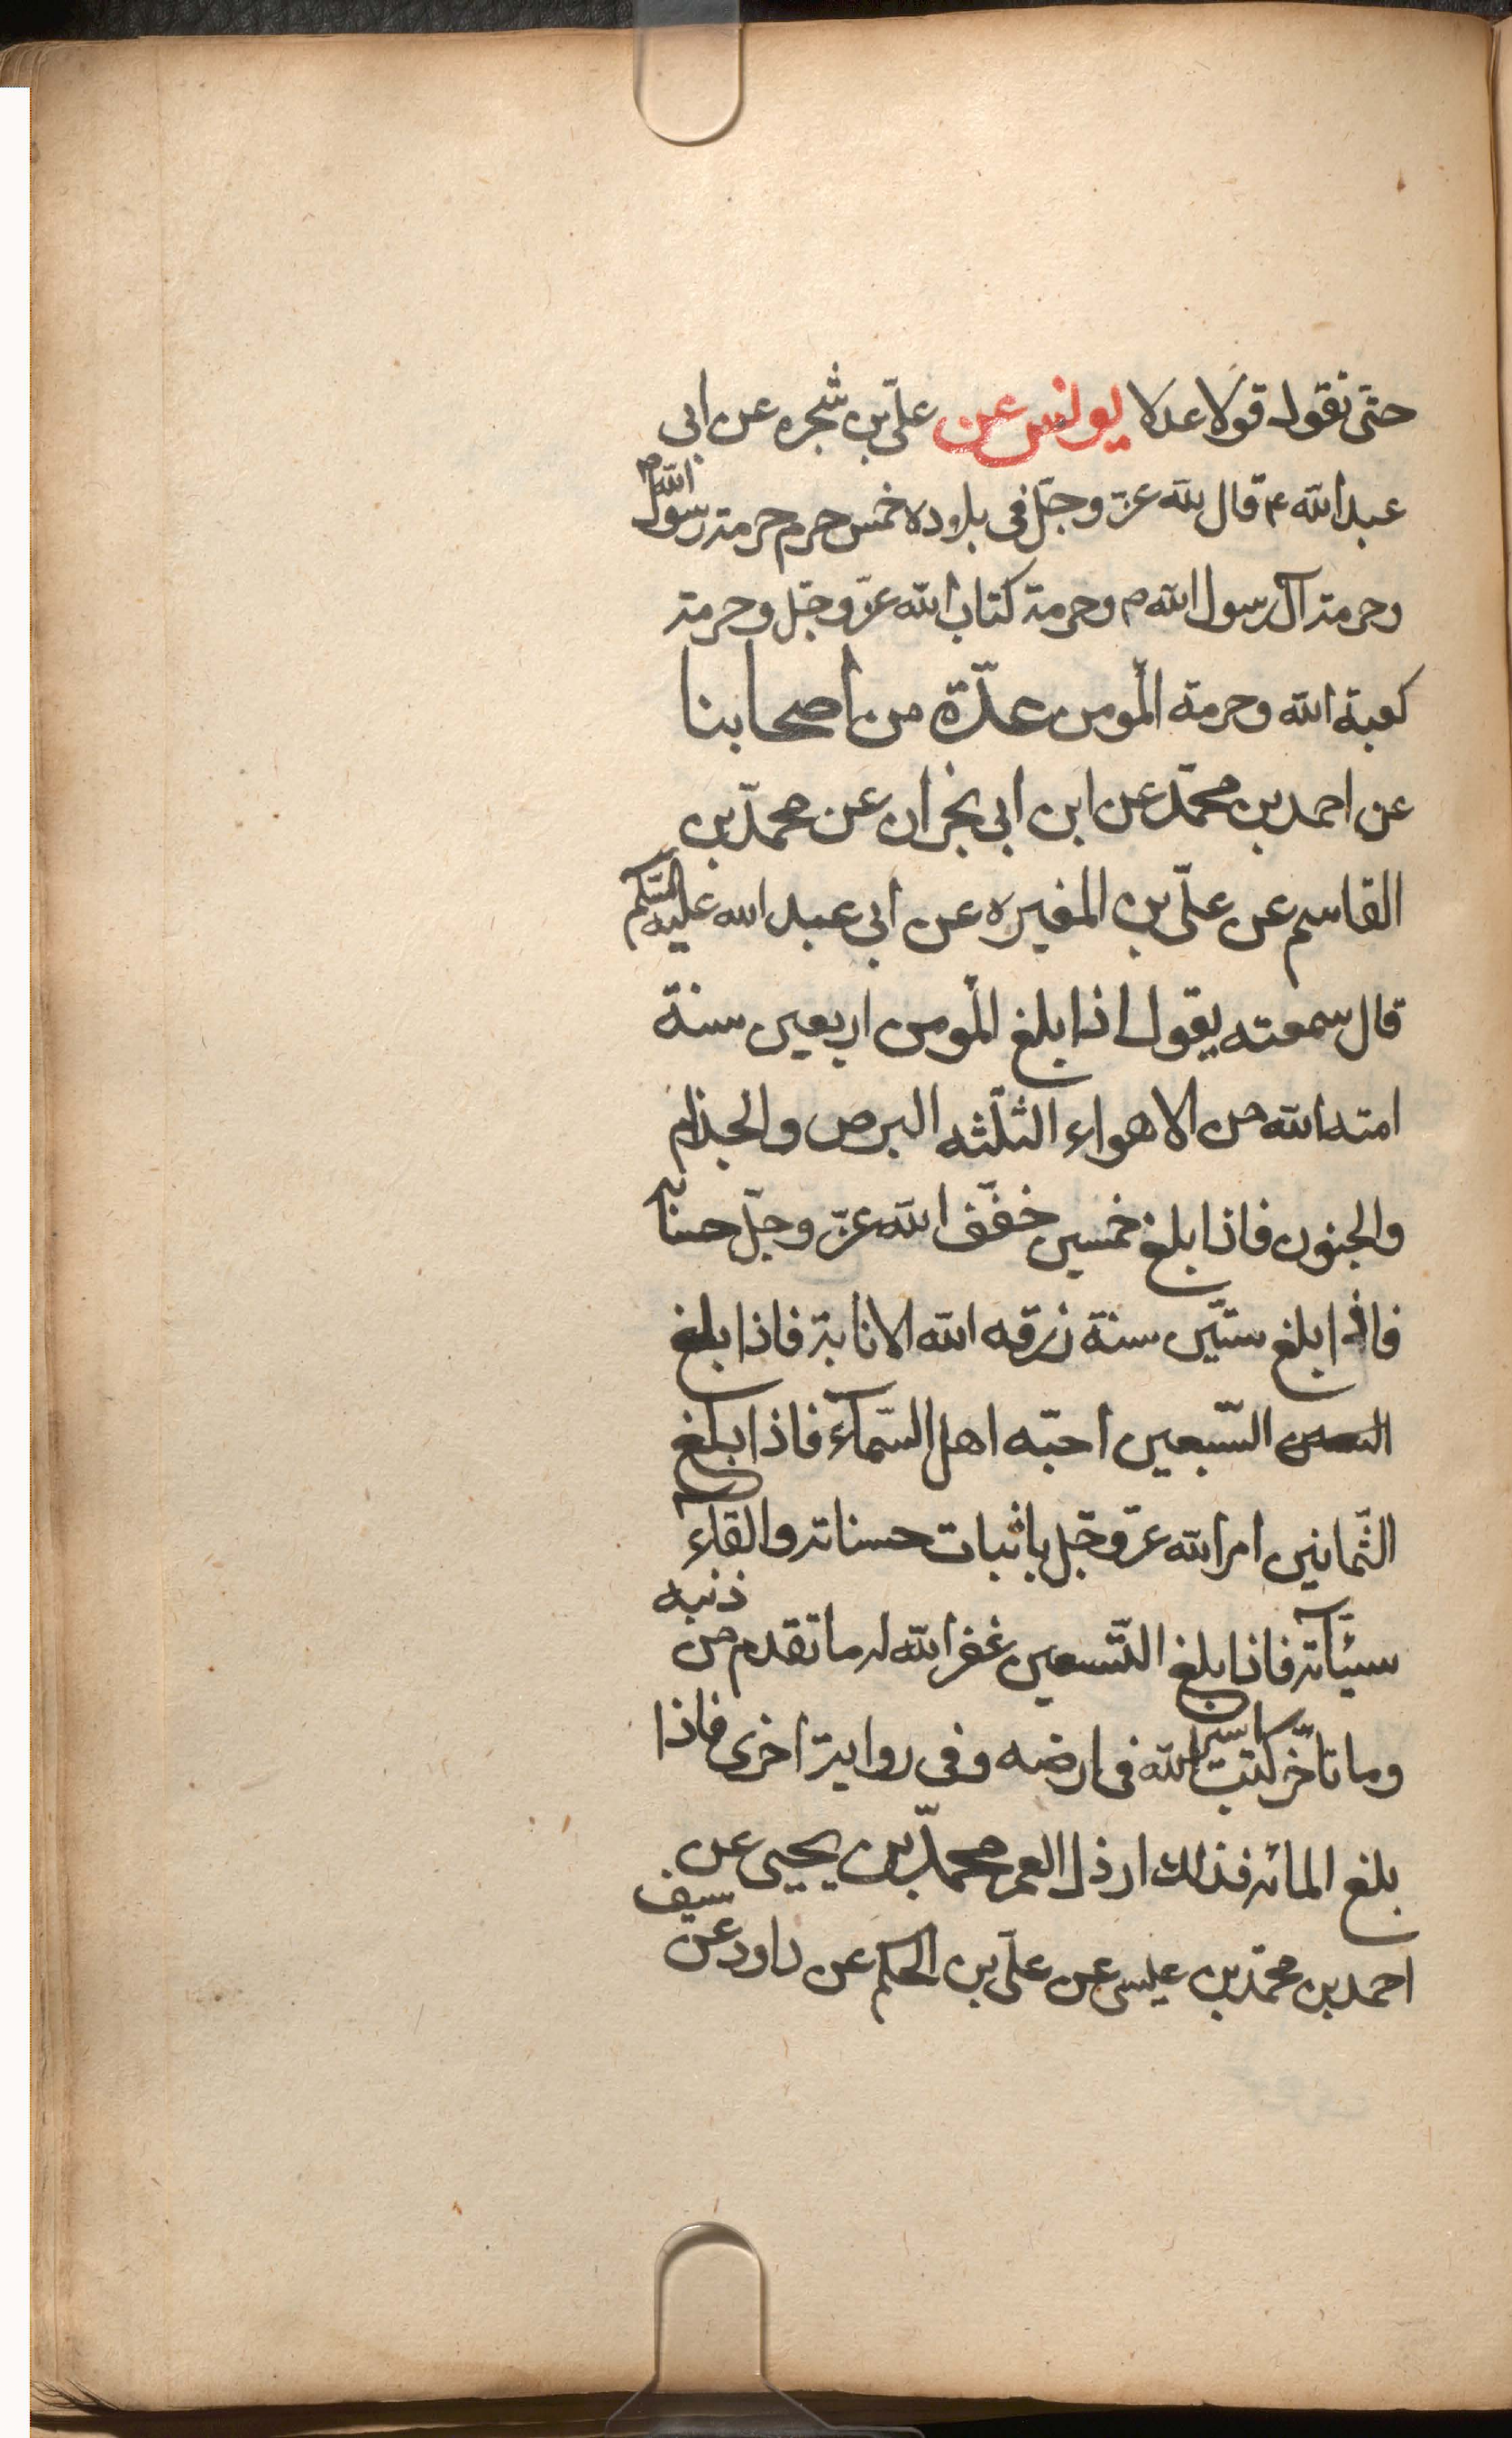 حتّى نقول قولا عدلا يونس عن علىّ بن شجره عن ابى
عبدالله ع قال لله عزّ وجلّ فى بلاده خمس حرم حرمة رسول الله ص
وحرمة آل رسول الله ص وحرمة كتاب الله عزّ وجلّ وحرمة
كعبة الله وحرمة المؤمن عدّة من اصحابنا
عن احمد بن محمّد عن ابن ابى نجران عن محمّد بن
القاسم عن علىّ بن المغيره عن ابى عبد الله عليه السّلم
قال سمعته يقول اذا بلغ المؤمن اربعين سنة
امنه الله من الاهواء الثلثه البرص والجذام
والجنون فاذا بلغ خمسين خفّف الله عزّ وجلّ حسابه
فاذا بلغ ستّين سنة رزقه الله الانابة فاذا بلغ
السّبعين احبّه اهل السّمآء فاذا بلغ
الثّمانين امر الله عزّ وجلّ باثبات حسناته والقآء
سيّئآته فاذا بلغ التّسعين غفر الله له ما تقدم من ذنبه
وما تأخّر كتب اسير الله فى ارضه وفى رواية اخرى فاذا
بلغ المائه فذلك ارذل العمر محمّد بن يحيى عن
احمد بن محمّد بن عيسى عن علىّ بن الحكم عن داود عن سيف